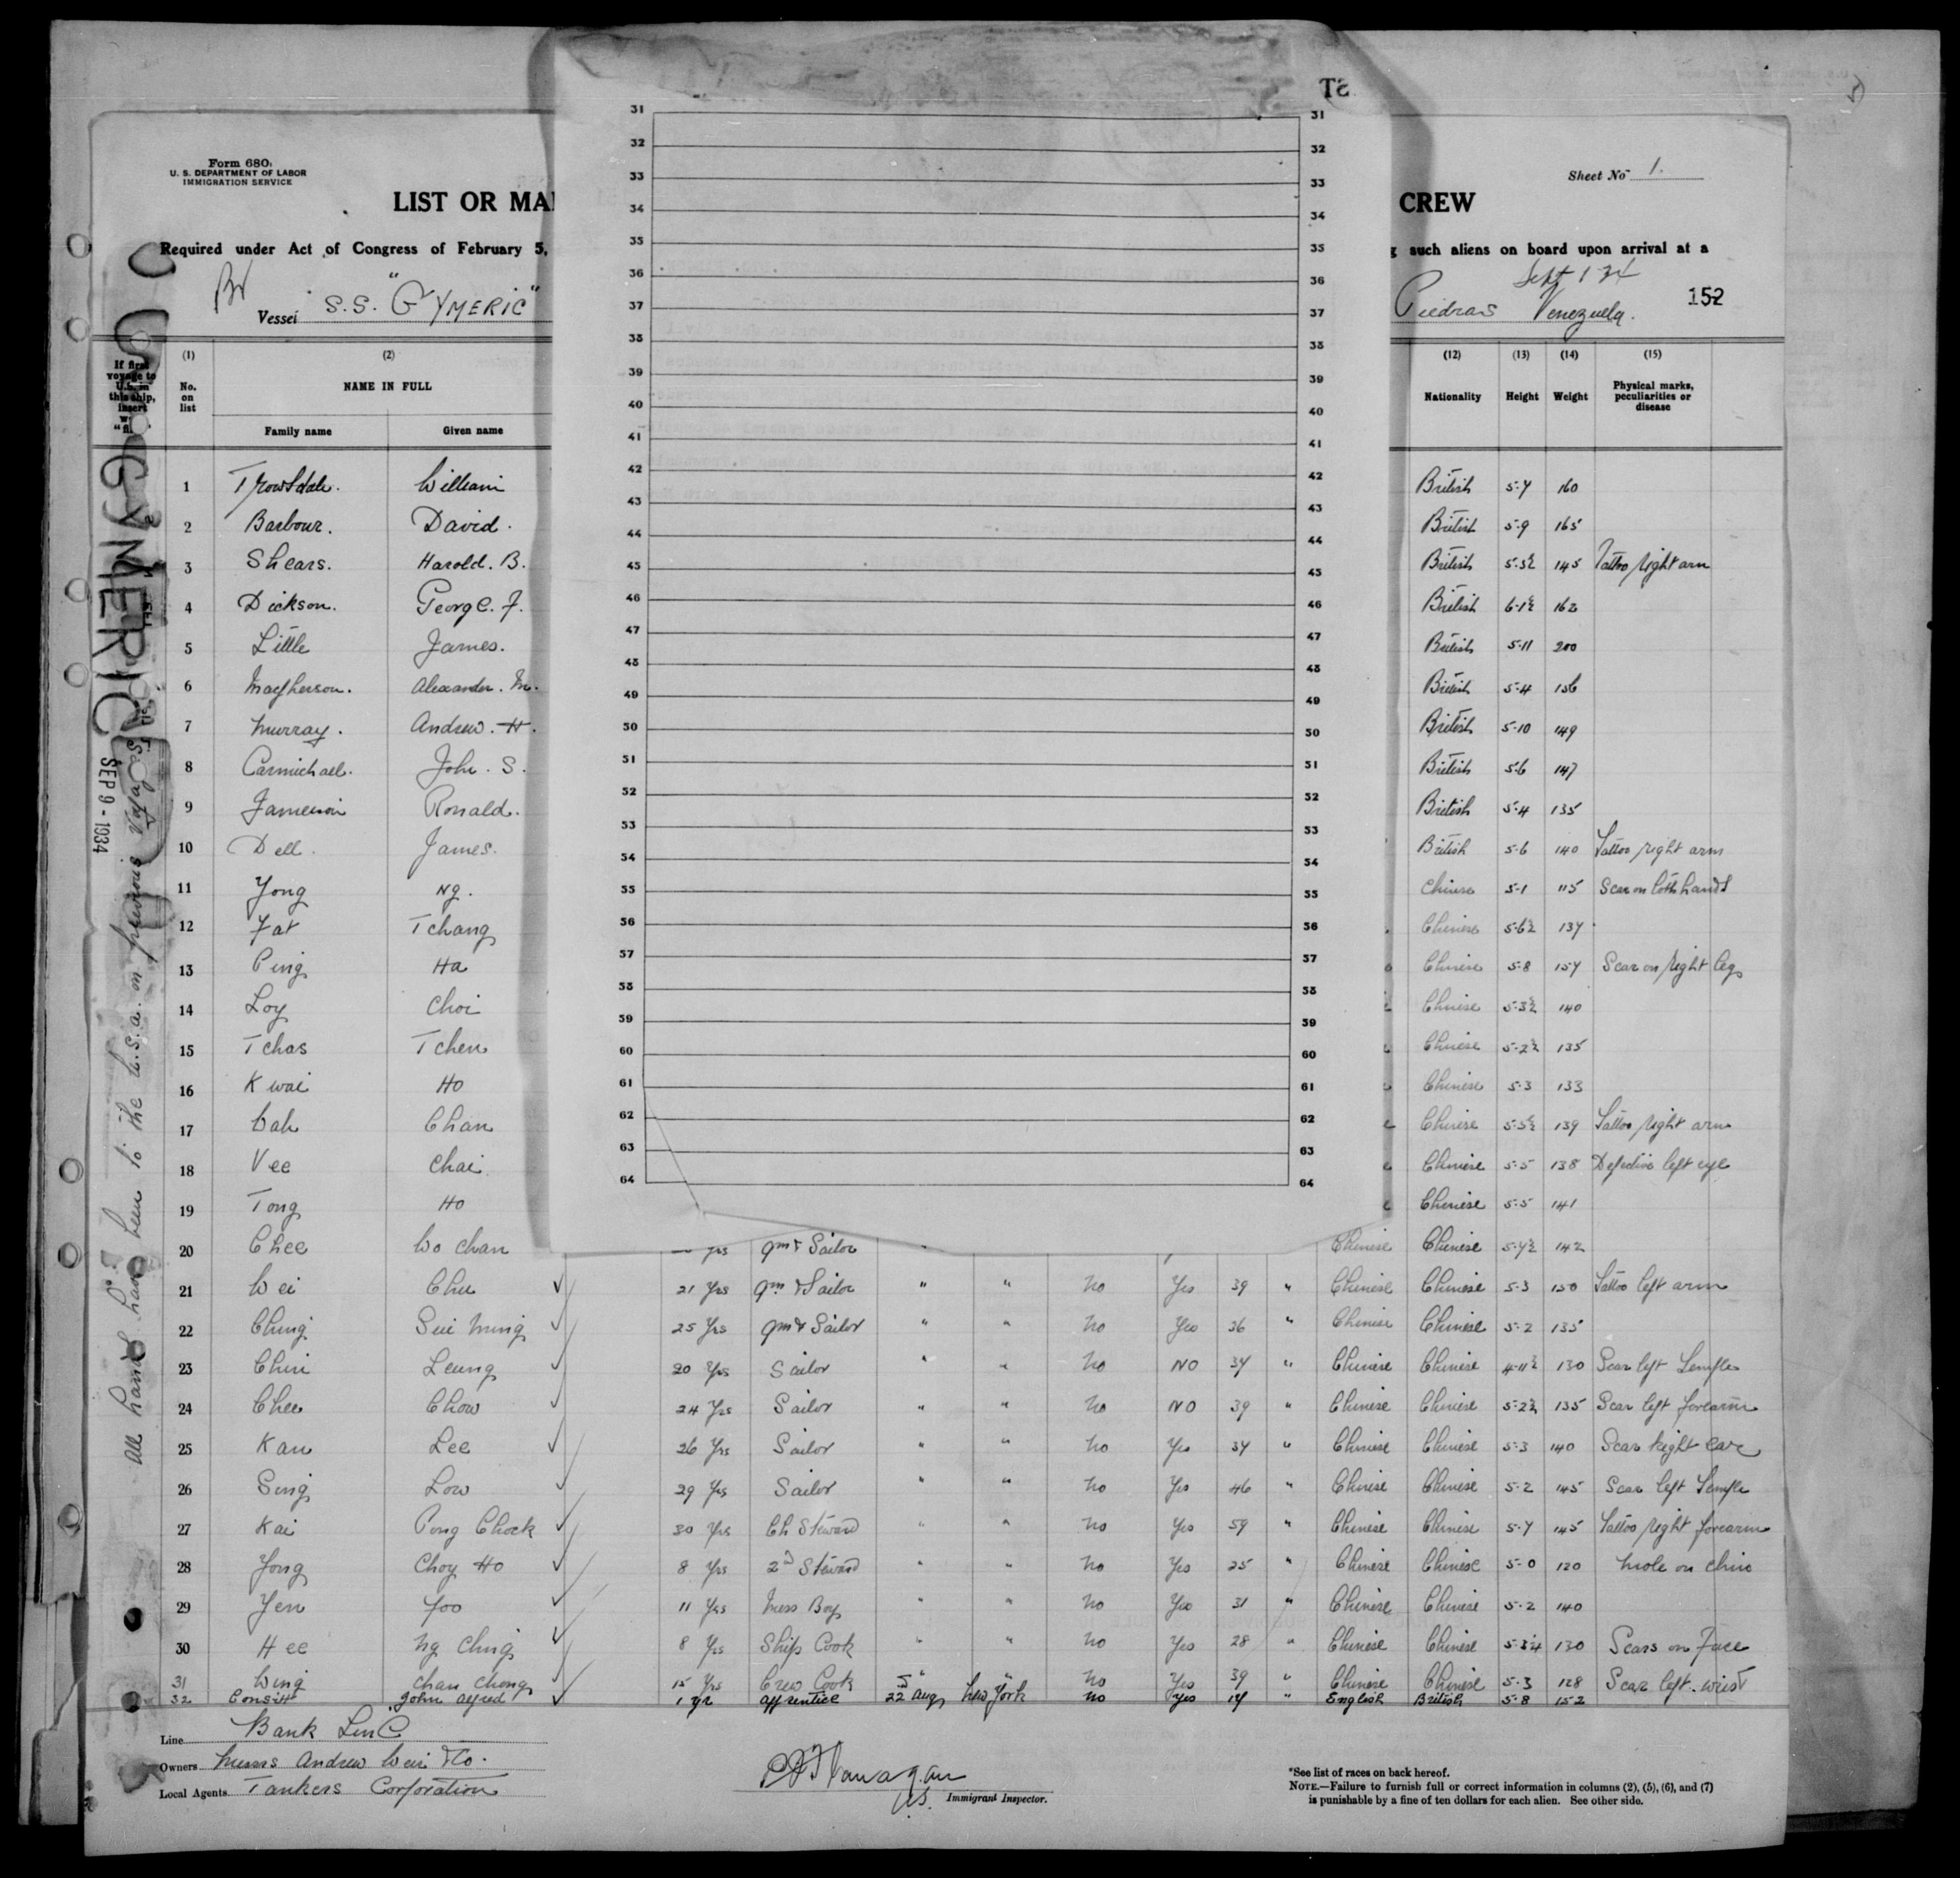 Form 680
U. S. DEPARTMENT OF LABOR
IMMIGRATION SERVICE
Sheet No 1.
LIST OR MA
CREW
Required under Act of Congress of February 5,
such aliens on board upon arrival at a
Br
Sept 1 34
Vessel S.S. "GYMERIC"
Piedras Venezuela.
152
If first voyage to U.S. in this ship, insert
(1) No. on list
(2) NAME IN FULL
Family name Given name
(12) Nationality
(13) Height
(14) Weight
(15) Physical marks, peculiarities or disease
GYMERIC
SEP 9 - 1934
All hands have been to the U.S.A. on previous voyages
31 31
32 32
33 33
34 34
35 35
36 36
37 37
38 38
39 39
40 40
41 41
42 42
43 43
44 44
45 45
46 46
47 47
48 48
49 49
50 50
51 51
52 52
53 53
54 54
55 55
56 56
57 57
58 58
59 59
60 60
61 61
62 62
63 63
64 64
1 Trowsdale. William British 5-7 160
2 Barbour. David. British 5-9 165
3 Shears. Harold. B. British 5-5½ 145 Tattoo right arm
4 Dickson. George. F. British 6-1½ 162
5 Little James. British 5-11 200
6 Macpherson. Alexander. M. British 5-4 156
7 Murray. Andrew. H. British 5-10 149
8 Carmichael. John. S. British 5-6 147
9 Jameson Ronald. British 5-4 135
10 Dell. James. British 5-6 140 Tattoo right arm
11 Yong Ng. Chinese 5-1 115 Scar on both hands
12 Fat Tchang Chinese 5-6½ 137
13 Ping Ha Chinese 5-8 157 Scar on right leg
14 Loy Choi Chinese 5-3½ 140
15 Tchas Tchen Chinese 5-2½ 135
16 Kwai Ho Chinese 5-3 133
17 Wah Chan Chinese 5-5½ 139 Tattoo right arm
18 Vee Chai Chinese 5-5 138 Defective left eye
19 Tong Ho Chinese 5-5 141
20 Chee Wo Chan yrs Qmr Sailor Chinese Chinese 5-4½ 142
21 Wei Chu 21 Yrs Qmr Sailor " " No Yes 39 " Chinese Chinese 5-3 150 Tattoo left arm
22 Ching Sui Ming 25 Yrs Qmr Sailor " " No Yes 36 " Chinese Chinese 5-2 135
23 Chin Leung 20 Yrs Sailor " " No NO 37 " Chinese Chinese 4-11½ 130 Scar left Temple
24 Chee Chow 24 Yrs Sailor " " No NO 39 " Chinese Chinese 5-2½ 135 Scar left forearm
25 Kan Lee 26 Yrs Sailor " " No Yes 37 " Chinese Chinese 5-3 140 Scar Right Ear
26 Sing Low 29 Yrs Sailor " " No Yes 46 " Chinese Chinese 5-2 145 Scar left Temple
27 Kai Pong Chock 30 Yrs Ch Steward " " No Yes 59 " Chinese Chinese 5-7 145 Tattoo right forearm
28 Yong Choy Ho 8 Yrs 2nd Steward " " No Yes 25 " Chinese Chinese 5-0 120 Mole on Chin
29 Yen Foo 11 Yrs Mess Boy " " No Yes 31 " Chinese Chinese 5-2 140
30 Hee Ng Ching 8 Yrs Ships Cook " " No Yes 28 " Chinese Chinese 5-3¼ 130 Scars on Face
31 Wing Chan Chong 15 Yrs Crew Cook " " No Yes 39 " Chinese Chinese 5-3 128 Scar left wrist
32 Consitt John Alfred 1 yr Apprentice 22 Aug New York No Yes 17 " English British 5-8 152
Line Bank Line
Owners Messrs Andrew Weir & Co.
Local Agents Tankers Corporation
Flanagan
Immigrant Inspector.
*See list of races on back hereof.
NOTE.—Failure to furnish full or correct information in columns (2), (5), (6), and (7)
is punishable by a fine of ten dollars for each alien. See other side.